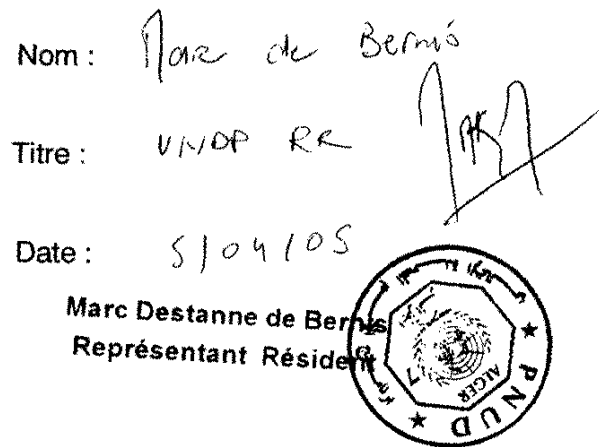 Nom : Marc de Bernis
Titre : UNDP RR
Date : 5/04/05
Marc Destanne de Bernis
Représentant Résident
ALGER
PNUD